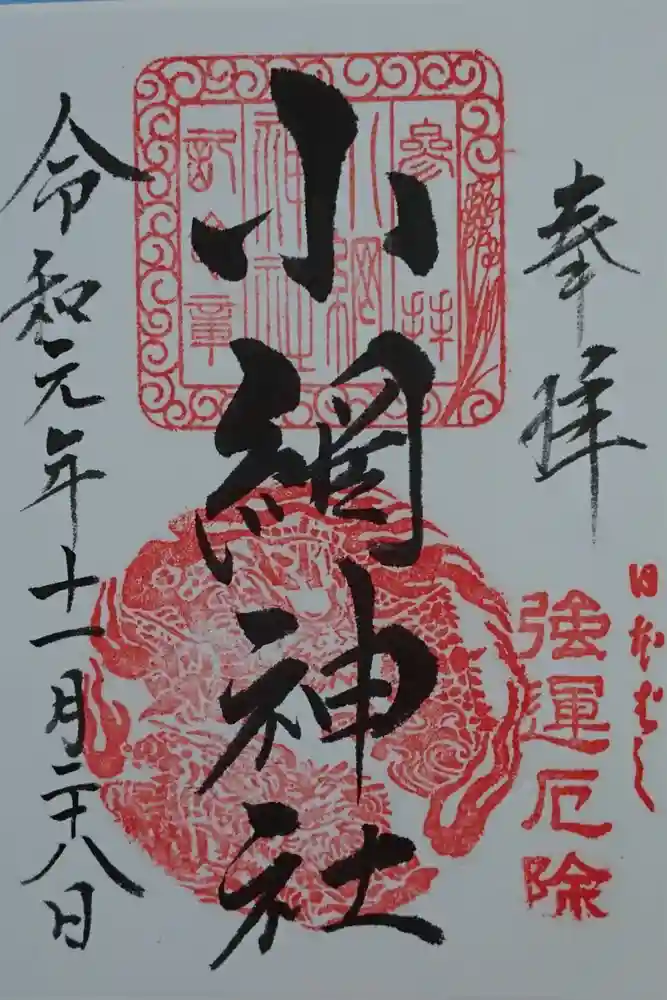 奉拝
日本ばし
強運厄除
小網神社
参拝
小網
神社
記念章
令和元年十一月二十八日